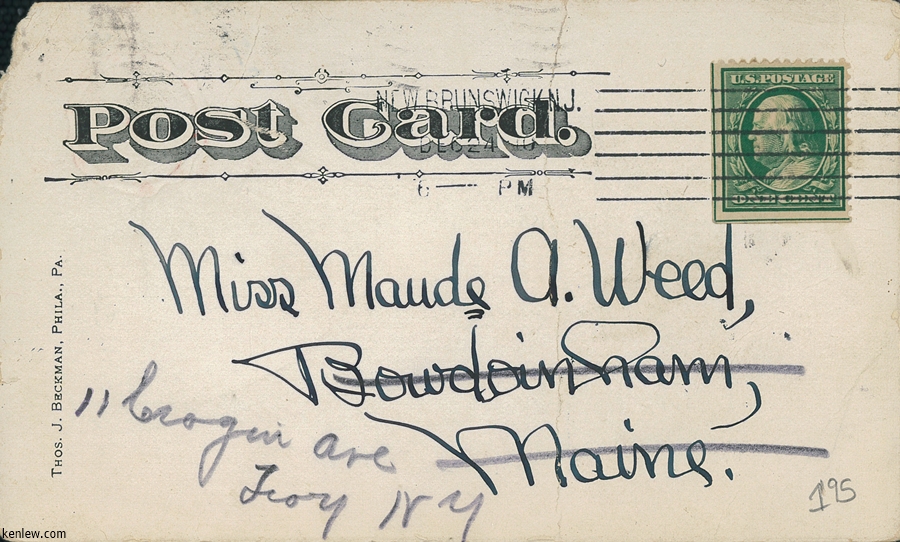 Post Card.
NEW BRUNSWICK N.J.
DEC 24
6 — PM
U.S. POSTAGE
ONE CENT
Miss Maude A. Weed,
Bowdoinham,
Maine.
11 Ave
Troy N Y
THOS. J. BECKMAN, PHILA., PA.
195
kenlew.com